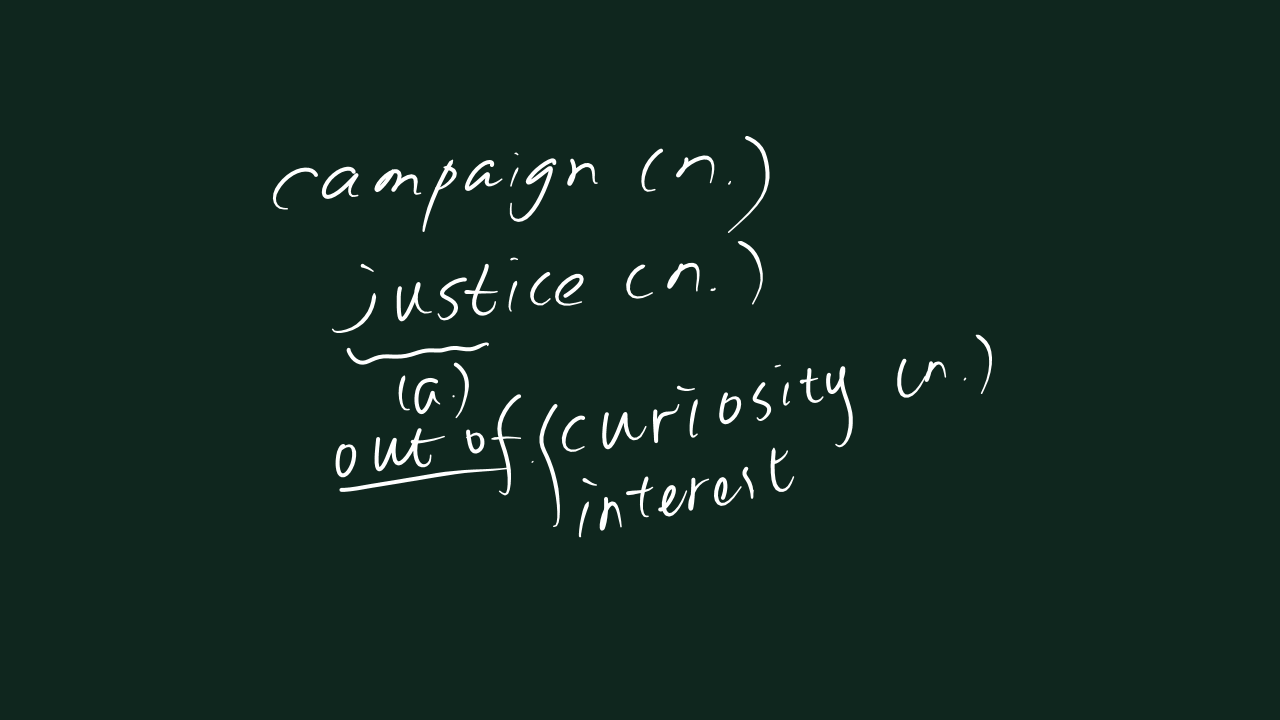 campaign (n.)
justice (n.)
(a.)
out of { curiosity (n.)
interest